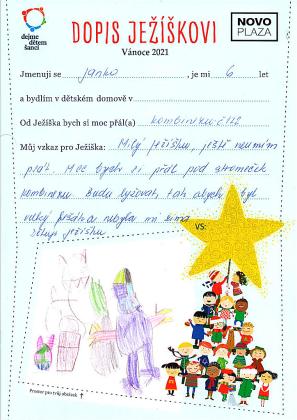 dejme
dětem
šanci
DOPIS JEŽÍŠKOVI
NOVO
PLAZA
Vánoce 2021
Jmenuji se Janko, je mi 6 let
a bydlím v dětském domově v
Od Ježíška bych si moc přál(a) kombinézu č. 122
Můj vzkaz pro Ježíška: Milý Ježíšku, ještě neumím
psát. Moc bych si přál pod stromeček
kombinézu. Budu lyžovat, tak abych byl
velký a nebyla mi zima
Ježíšku
VS:
Prostor pro tvůj obrázek ↑